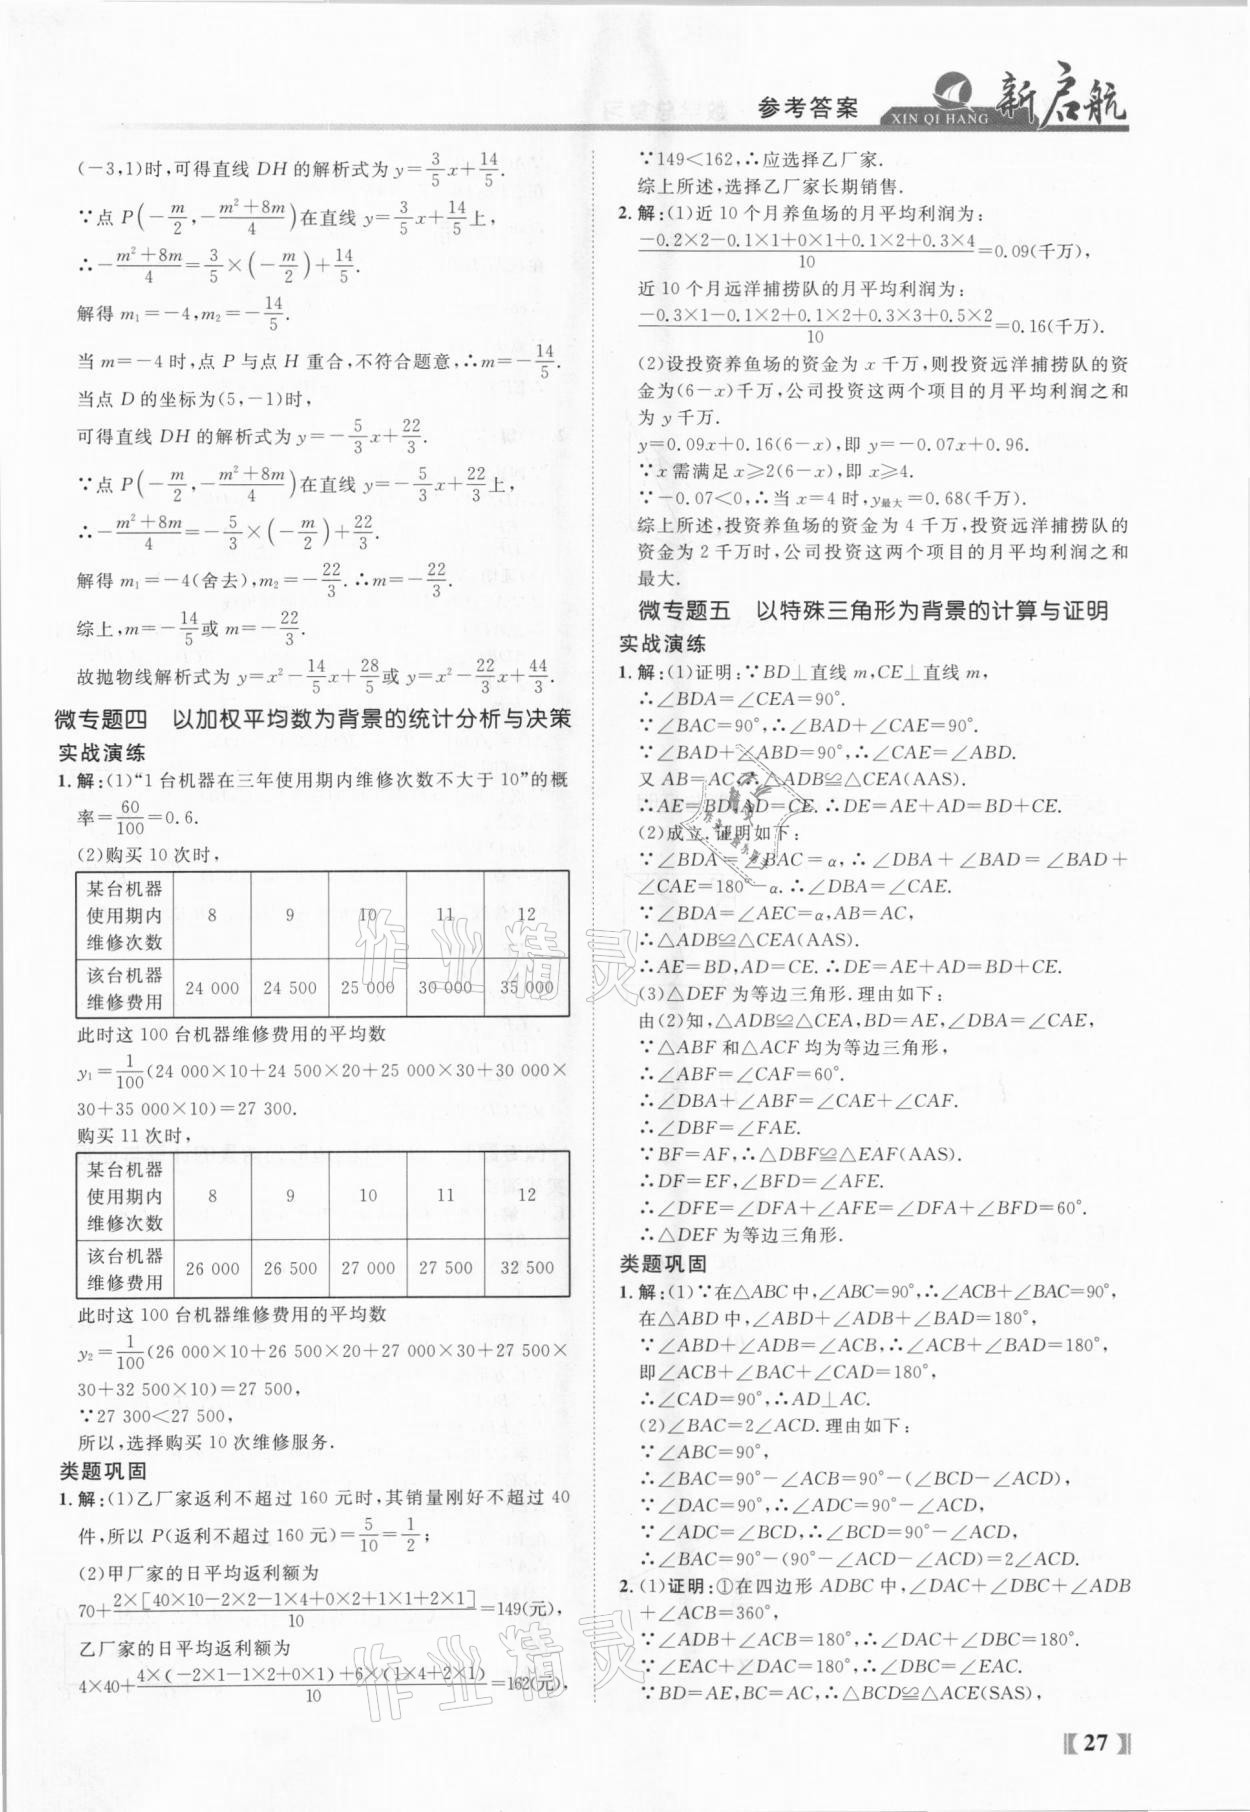 参考答案
XIN QI HANG
新启航
(-3,1)时,可得直线 DH 的解析式为 y=3/5x+14/5.
∵点 P(-m/2,-(m²+8m)/4)在直线 y=3/5x+14/5上,
∴-(m²+8m)/4=3/5×(-m/2)+14/5.
解得 m₁=-4,m₂=-14/5.
当 m=-4 时,点 P 与点 H 重合,不符合题意,∴m=-14/5.
当点 D 的坐标为(5,-1)时,
可得直线 DH 的解析式为 y=-5/3x+22/3.
∵点 P(-m/2,-(m²+8m)/4)在直线 y=-5/3x+22/3上,
∴-(m²+8m)/4=-5/3×(-m/2)+22/3.
解得 m₁=-4(舍去),m₂=-22/3.∴m=-22/3.
综上,m=-14/5或 m=-22/3.
故抛物线解析式为 y=x²-14/5x+28/5或 y=x²-22/3x+44/3.
微专题四 以加权平均数为背景的统计分析与决策
实战演练
1.解:(1)“1 台机器在三年使用期内维修次数不大于 10”的概
率=60/100=0.6.
(2)购买 10 次时,
某台机器使用期内维修次数 8 9 10 11 12
该台机器维修费用 24 000 24 500 25 000 30 000 35 000
此时这 100 台机器维修费用的平均数
y₁=1/100(24 000×10+24 500×20+25 000×30+30 000×
30+35 000×10)=27 300.
购买 11 次时,
某台机器使用期内维修次数 8 9 10 11 12
该台机器维修费用 26 000 26 500 27 000 27 500 32 500
此时这 100 台机器维修费用的平均数
y₂=1/100(26 000×10+26 500×20+27 000×30+27 500×
30+32 500×10)=27 500,
∵27 300<27 500,
所以,选择购买 10 次维修服务.
类题巩固
1.解:(1)乙厂家返利不超过 160 元时,其销量刚好不超过 40
件,所以 P(返利不超过 160 元)=5/10=1/2;
(2)甲厂家的日平均返利额为
70+2×[40×10-2×2-1×4+0×2+1×1+2×1]/10=149(元),
乙厂家的日平均返利额为
4×40+4×(-2×1-1×2+0×1)+6×(1×4+2×1)/10=162(元),
∵149<162,∴应选择乙厂家.
综上所述,选择乙厂家长期销售.
2.解:(1)近 10 个月养鱼场的月平均利润为:
(-0.2×2-0.1×1+0×1+0.1×2+0.3×4)/10=0.09(千万),
近 10 个月远洋捕捞队的月平均利润为:
(-0.3×1-0.1×2+0.1×2+0.3×3+0.5×2)/10=0.16(千万).
(2)设投资养鱼场的资金为 x 千万,则投资远洋捕捞队的资
金为(6-x)千万,公司投资这两个项目的月平均利润之和
为 y 千万.
y=0.09x+0.16(6-x),即 y=-0.07x+0.96.
∵x 需满足 x≥2(6-x),即 x≥4.
∵-0.07<0,∴当 x=4 时,y最大=0.68(千万).
综上所述,投资养鱼场的资金为 4 千万,投资远洋捕捞队的
资金为 2 千万时,公司投资这两个项目的月平均利润之和
最大.
微专题五 以特殊三角形为背景的计算与证明
实战演练
1.解:(1)证明:∵BD⊥直线 m,CE⊥直线 m,
∴∠BDA=∠CEA=90°.
∵∠BAC=90°,∴∠BAD+∠CAE=90°.
∵∠BAD+∠ABD=90°,∴∠CAE=∠ABD.
又 AB=AC,∴△ADB≌△CEA(AAS).
∴AE=BD,AD=CE.∴DE=AE+AD=BD+CE.
(2)成立.证明如下:
∵∠BDA=∠BAC=α,∴∠DBA+∠BAD=∠BAD+
∠CAE=180°-α.∴∠DBA=∠CAE.
∵∠BDA=∠AEC=α,AB=AC,
∴△ADB≌△CEA(AAS).
∴AE=BD,AD=CE.∴DE=AE+AD=BD+CE.
(3)△DEF 为等边三角形.理由如下:
由(2)知,△ADB≌△CEA,BD=AE,∠DBA=∠CAE,
∵△ABF 和△ACF 均为等边三角形,
∴∠ABF=∠CAF=60°.
∴∠DBA+∠ABF=∠CAE+∠CAF.
∴∠DBF=∠FAE.
∵BF=AF,∴△DBF≌△EAF(AAS).
∴DF=EF,∠BFD=∠AFE.
∴∠DFE=∠DFA+∠AFE=∠DFA+∠BFD=60°.
∴△DEF 为等边三角形.
类题巩固
1.解:(1)∵在△ABC 中,∠ABC=90°,∴∠ACB+∠BAC=90°,
在△ABD 中,∠ABD+∠ADB+∠BAD=180°,
∵∠ABD+∠ADB=∠ACB,∴∠ACB+∠BAD=180°,
即∠ACB+∠BAC+∠CAD=180°,
∴∠CAD=90°,∴AD⊥AC.
(2)∠BAC=2∠ACD.理由如下:
∵∠ABC=90°,
∴∠BAC=90°-∠ACB=90°-(∠BCD-∠ACD),
∵∠DAC=90°,∴∠ADC=90°-∠ACD,
∵∠ADC=∠BCD,∴∠BCD=90°-∠ACD,
∴∠BAC=90°-(90°-∠ACD-∠ACD)=2∠ACD.
2.(1)证明:①在四边形 ADBC 中,∠DAC+∠DBC+∠ADB
+∠ACB=360°,
∵∠ADB+∠ACB=180°,∴∠DAC+∠DBC=180°.
∵∠EAC+∠DAC=180°,∴∠DBC=∠EAC.
∵BD=AE,BC=AC,∴△BCD≌△ACE(SAS),
作业精灵
作业精灵
27